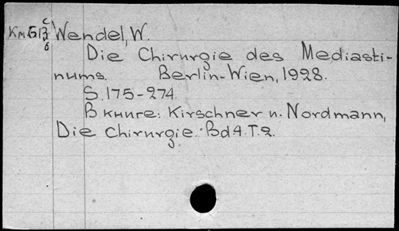 Wendel, W.
Die Chirurgie des Mediasti-
nums. Berlin-Wien, 1928.
S. 175-274.
В книге: Kirschner u. Nordmann,
Die Chirurgie. Bd 4. T. 2.